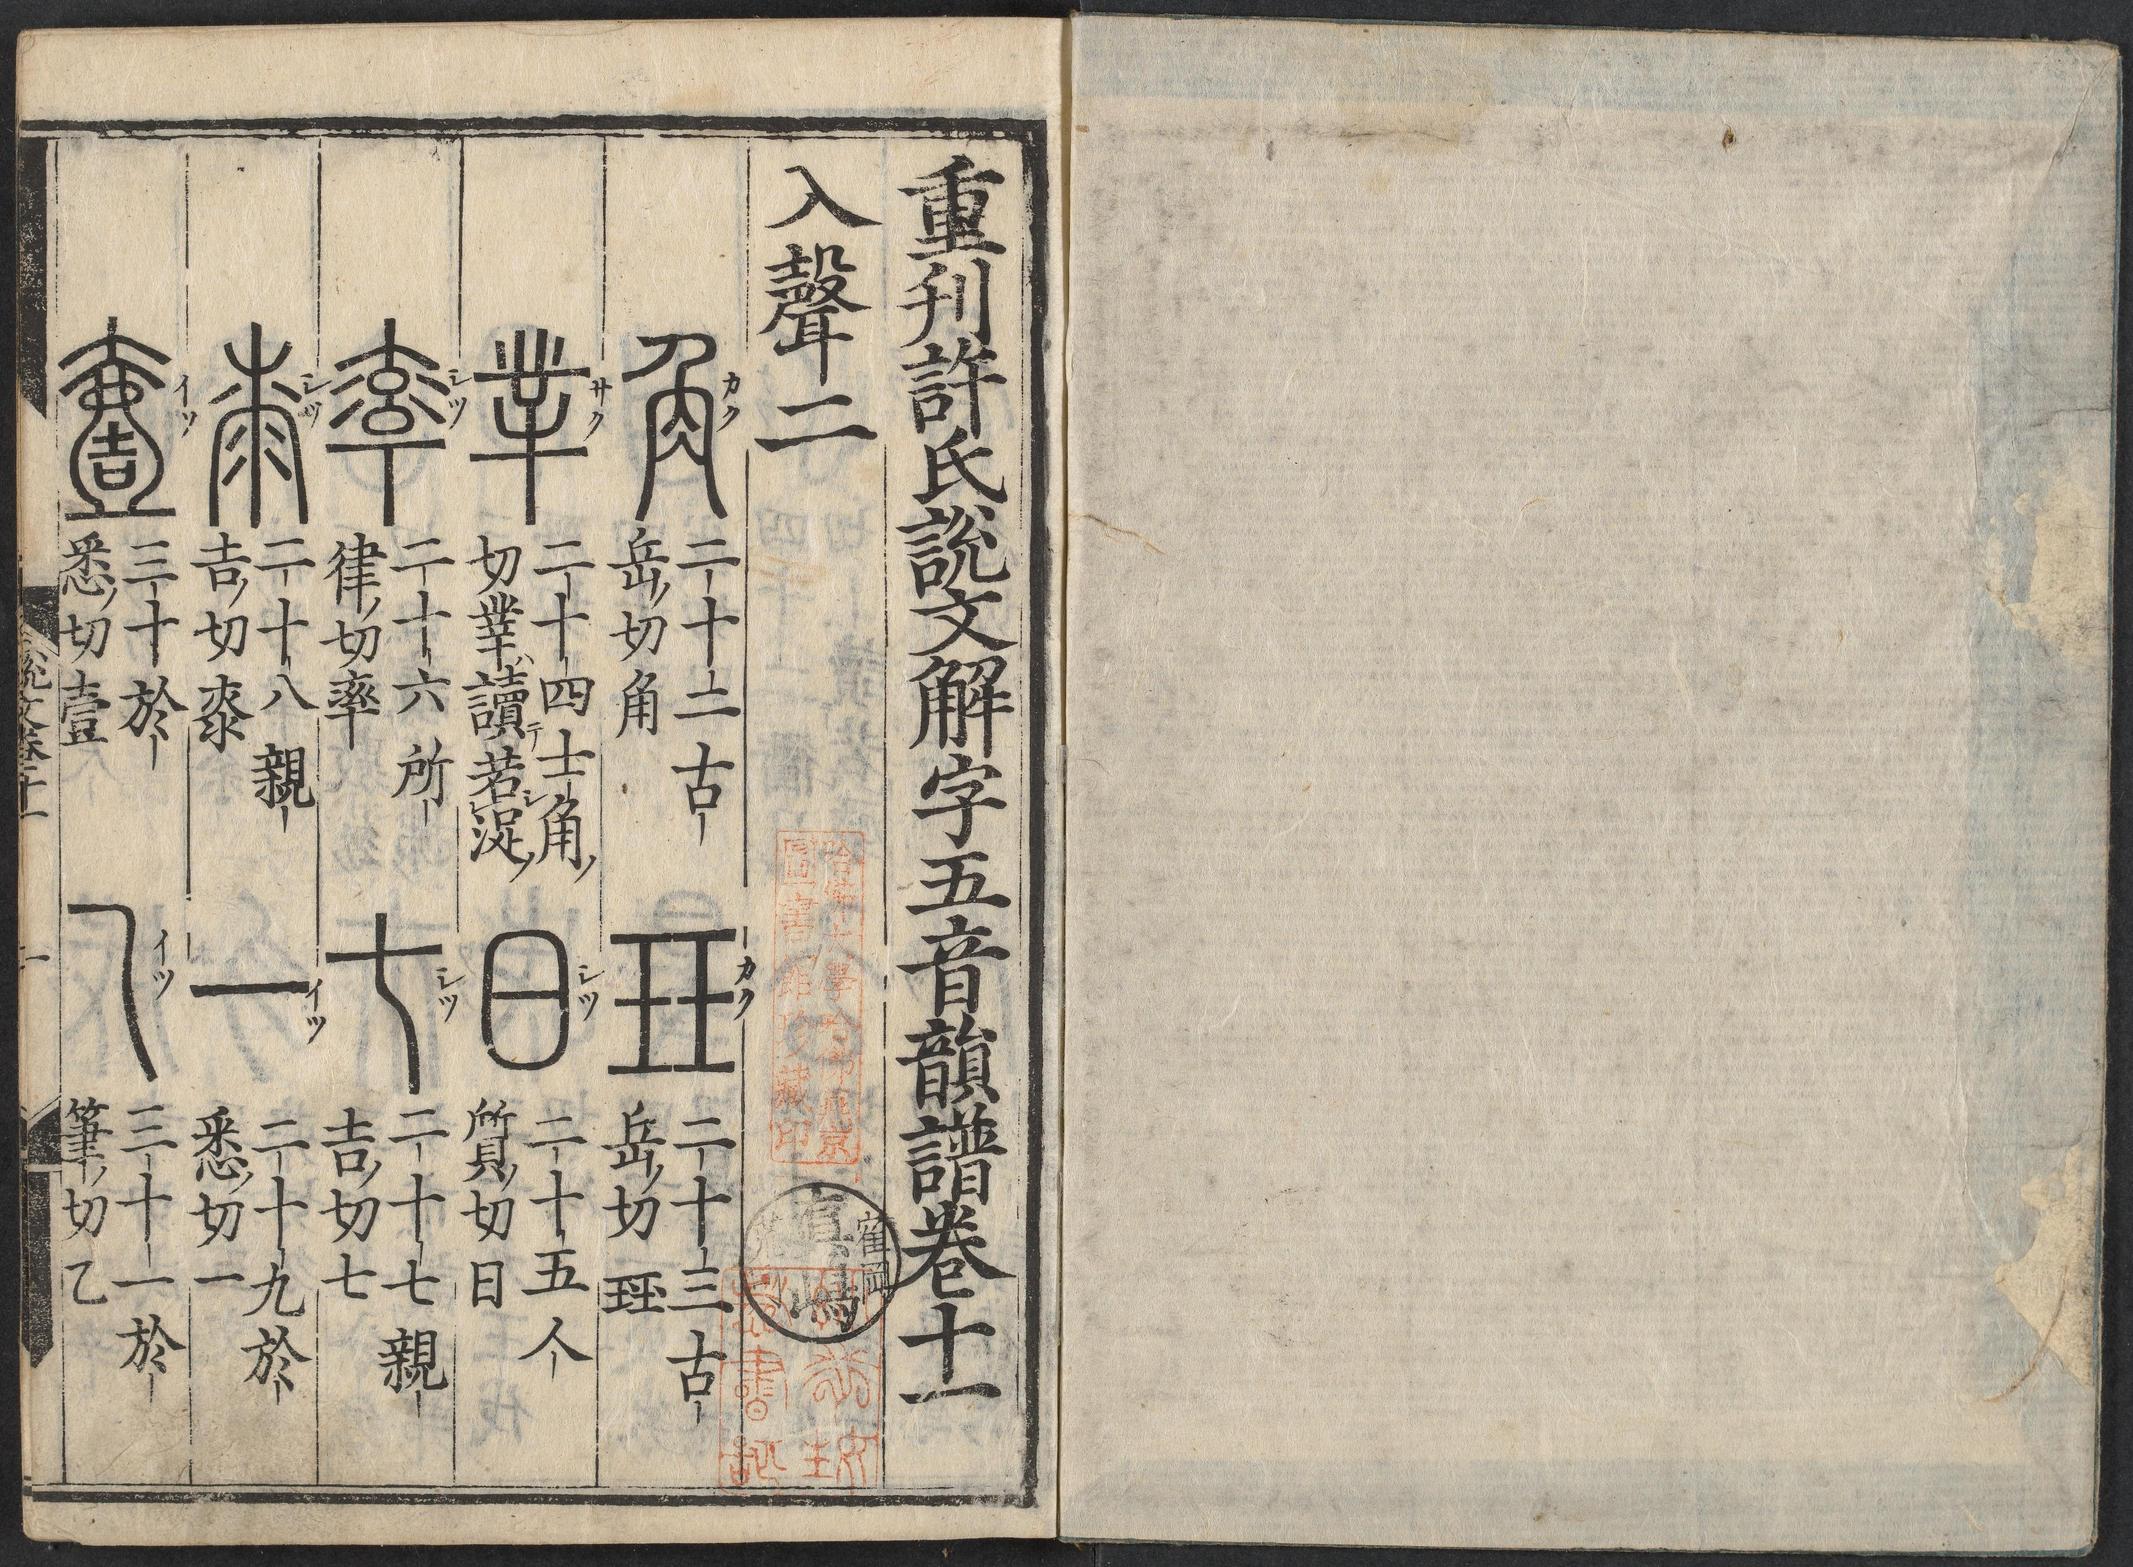 重刊許氏說文解字五音韻譜卷十一
入聲二
角 カク 二十二古岳切角
玨 カク 二十三古岳切玨
丵 サク 二十四士角切丵讀若浞
日 シツ 二十五人質切日
率 シツ 二十六所律切率
七 シツ 二十七親吉切七
桼 シツ 二十八親吉切桼
一 イツ 二十九於悉切一
壹 イツ 三十於悉切壹
乙 イツ 三十一於筆切乙
說文卷十一
一